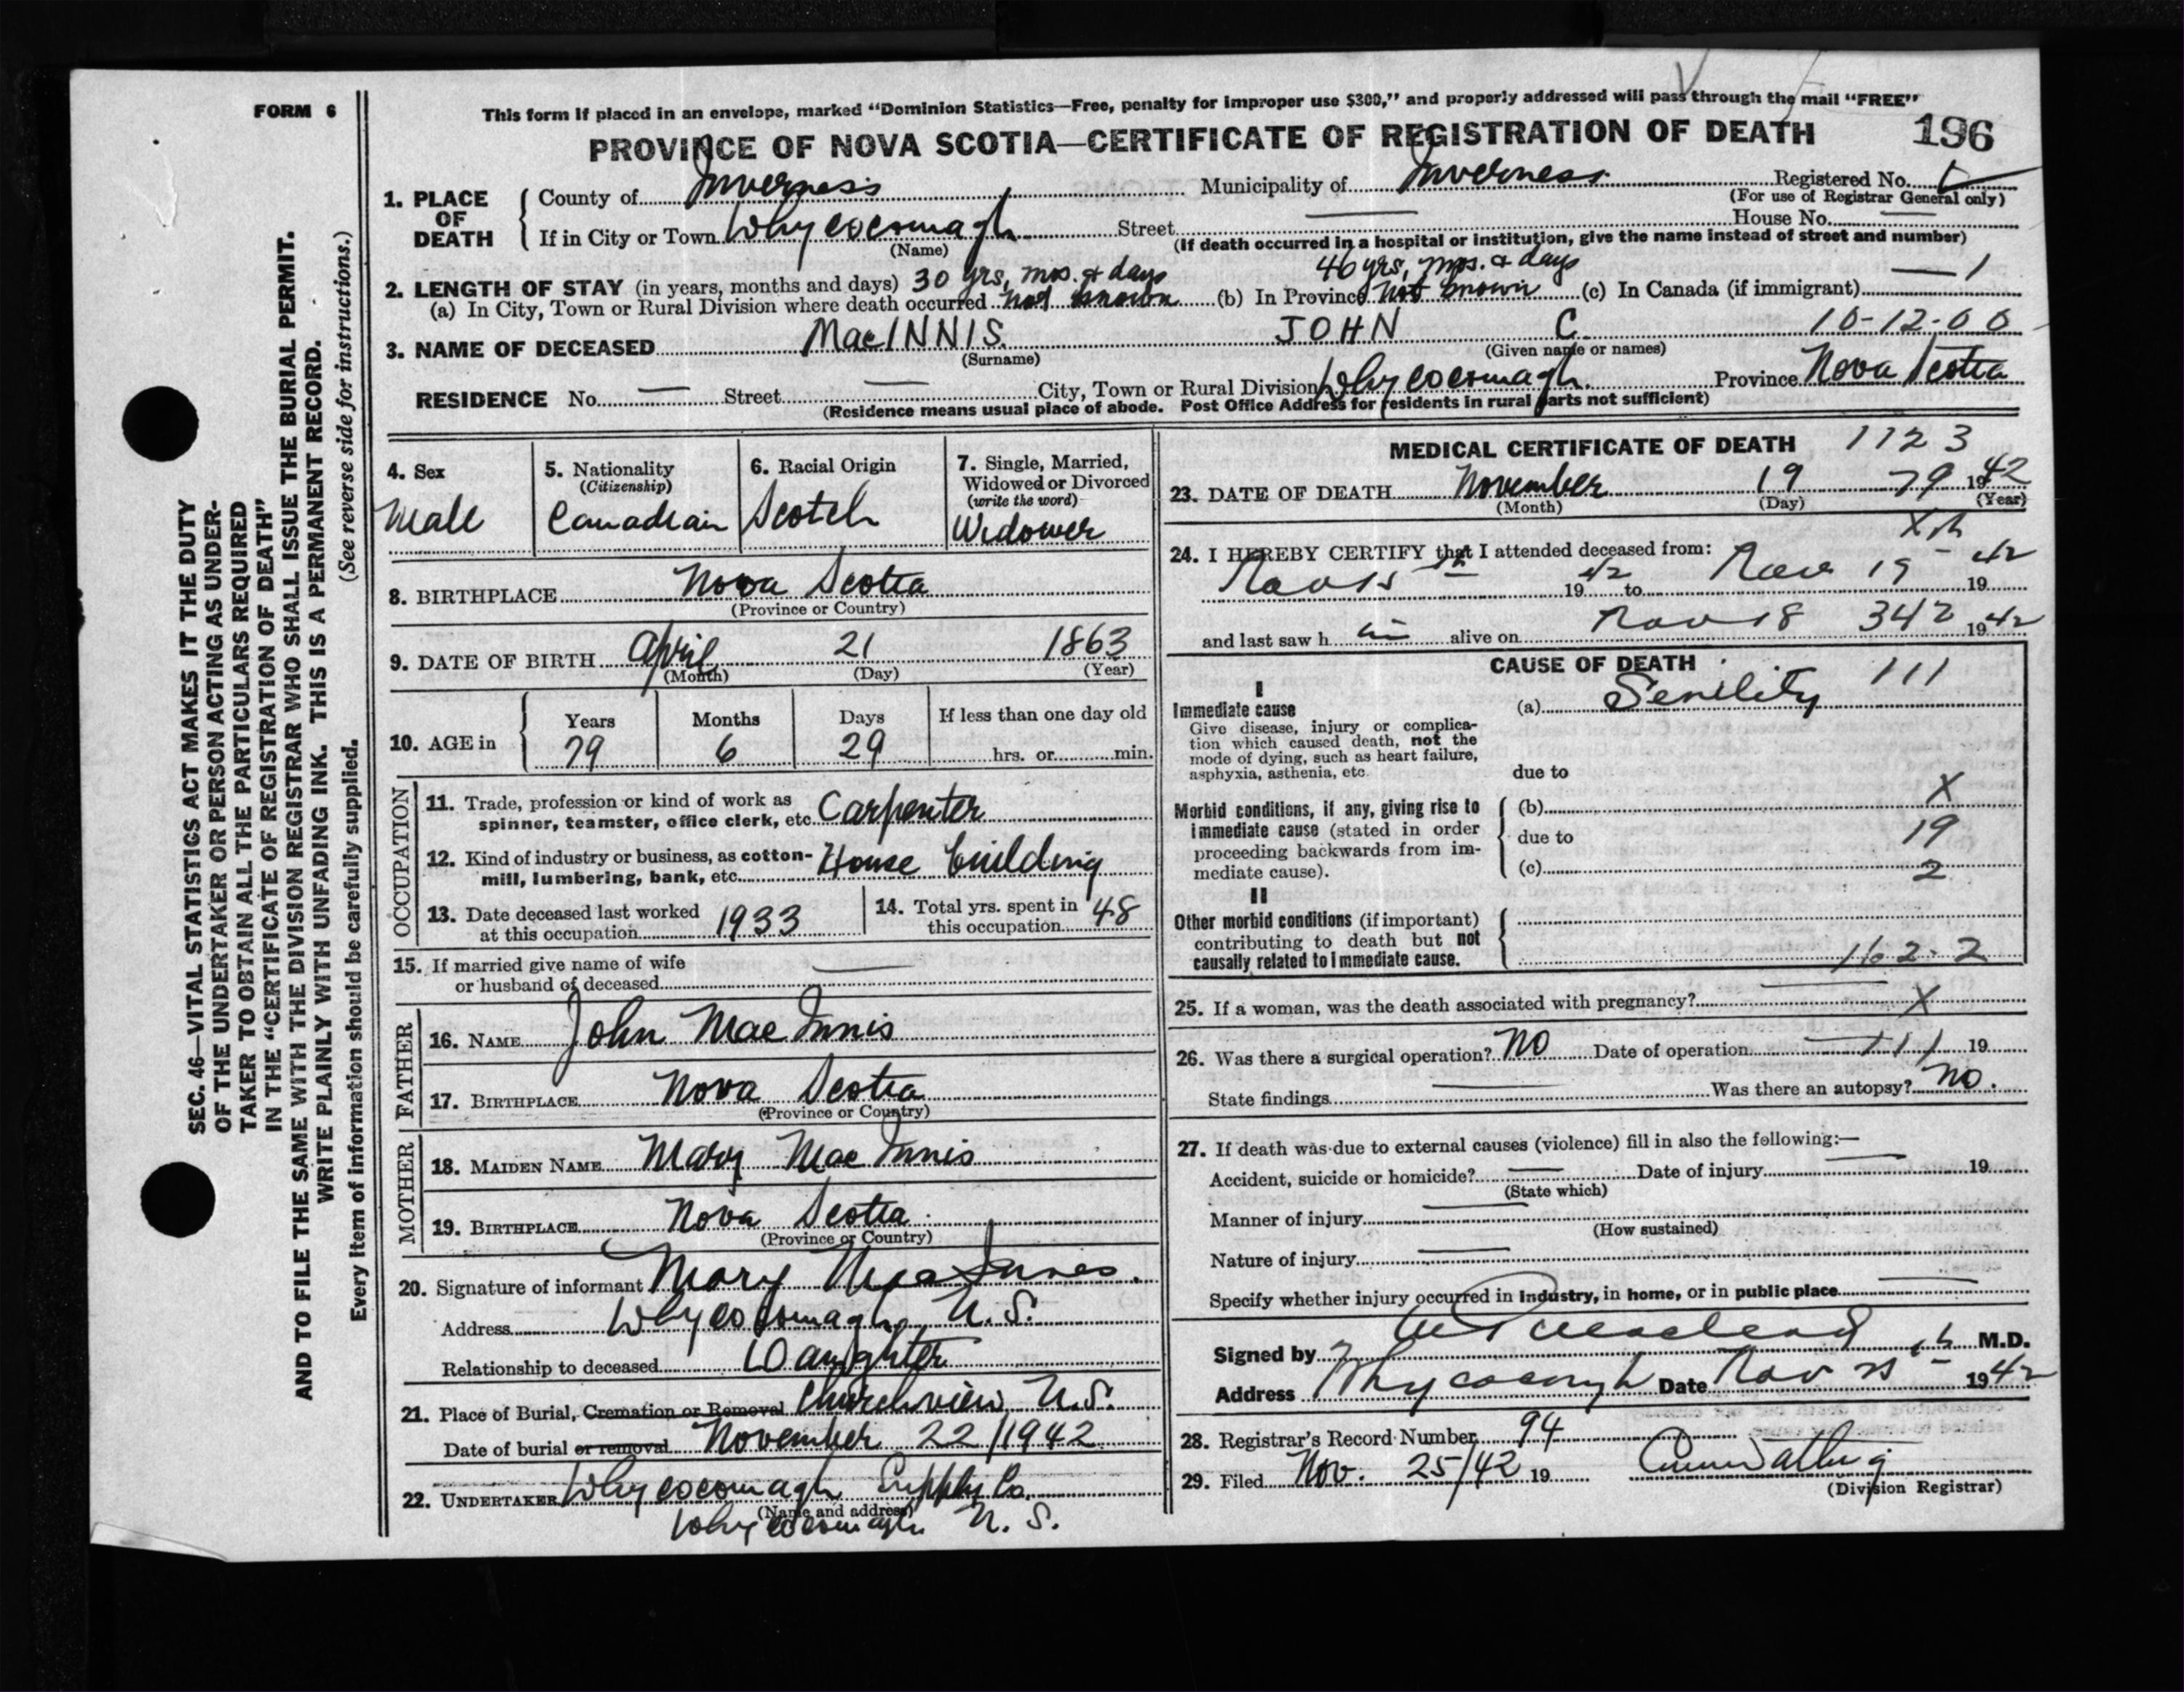 FORM 6
This form if placed in an envelope, marked "Dominion Statistics—Free, penalty for improper use $300," and properly addressed will pass through the mail "FREE"
PROVINCE OF NOVA SCOTIA—CERTIFICATE OF REGISTRATION OF DEATH 196
1. PLACE OF DEATH
County of Inverness Municipality of Inverness Registered No.
(For use of Registrar General only)
If in City or Town Whycocomagh Street House No.
(Name) (If death occurred in a hospital or institution, give the name instead of street and number)
2. LENGTH OF STAY (in years, months and days) 30 yrs, mos. & days 46 yrs, mos. & days
(a) In City, Town or Rural Division where death occurred not known (b) In Province not known (c) In Canada (if immigrant) 1
3. NAME OF DECEASED MacINNIS JOHN C. 10-12-00
(Surname) (Given name or names)
RESIDENCE No. Street City, Town or Rural Division Whycocomagh Province Nova Scotia
(Residence means usual place of abode. Post Office Address for residents in rural parts not sufficient)
4. Sex
Male
5. Nationality
(Citizenship)
Canadian
6. Racial Origin
Scotch
7. Single, Married,
Widowed or Divorced
(write the word)
Widower
8. BIRTHPLACE Nova Scotia
(Province or Country)
9. DATE OF BIRTH April 21 1863
(Month) (Day) (Year)
10. AGE in
Years Months Days If less than one day old
79 6 29 hrs. or min.
OCCUPATION
11. Trade, profession or kind of work as
spinner, teamster, office clerk, etc. Carpenter
12. Kind of industry or business, as cotton-
mill, lumbering, bank, etc. House building
13. Date deceased last worked
at this occupation 1933
14. Total yrs. spent in
this occupation 48
15. If married give name of wife
or husband of deceased
FATHER
16. NAME John MacInnis
17. BIRTHPLACE Nova Scotia
(Province or Country)
MOTHER
18. MAIDEN NAME Mary MacInnis
19. BIRTHPLACE Nova Scotia
(Province or Country)
20. Signature of informant Mary MacInnes
Address Whycocomagh, N.S.
Relationship to deceased Daughter
21. Place of Burial, Cremation or Removal Churchview N.S.
Date of burial or removal November 22/1942
22. UNDERTAKER Whycocomagh Supply Co.
(Name and address)
Whycocomagh N. S.
MEDICAL CERTIFICATE OF DEATH 1123
23. DATE OF DEATH November 19 79 1942
(Month) (Day) (Year)
24. I HEREBY CERTIFY that I attended deceased from:
Nov 19 42 to Nov 19 1942
and last saw h im alive on Nov 18 342 1942
CAUSE OF DEATH 111
I
Immediate cause
Give disease, injury or complica-
tion which caused death, not the
mode of dying, such as heart failure,
asphyxia, asthenia, etc.
(a) Senility
due to
Morbid conditions, if any, giving rise to
immediate cause (stated in order
proceeding backwards from im-
mediate cause).
(b) X
due to 19
(c) 2
II
Other morbid conditions (if important)
contributing to death but not
causally related to immediate cause.
162-2
25. If a woman, was the death associated with pregnancy? X
26. Was there a surgical operation? No Date of operation 111 19
State findings Was there an autopsy? No.
27. If death was due to external causes (violence) fill in also the following:—
Accident, suicide or homicide? Date of injury 19
(State which)
Manner of injury
(How sustained)
Nature of injury
Specify whether injury occurred in Industry, in home, or in public place
Signed by M.D.
Address Whycocomagh Date Nov 1942
28. Registrar's Record Number 94
29. Filed Nov. 25/42 19
(Division Registrar)
SEC. 46—VITAL STATISTICS ACT MAKES IT THE DUTY
OF THE UNDERTAKER OR PERSON ACTING AS UNDER-
TAKER TO OBTAIN ALL THE PARTICULARS REQUIRED
IN THE "CERTIFICATE OF REGISTRATION OF DEATH"
AND TO FILE THE SAME WITH THE DIVISION REGISTRAR WHO SHALL ISSUE THE BURIAL PERMIT.
WRITE PLAINLY WITH UNFADING INK. THIS IS A PERMANENT RECORD.
(See reverse side for instructions.)
Every item of information should be carefully supplied.